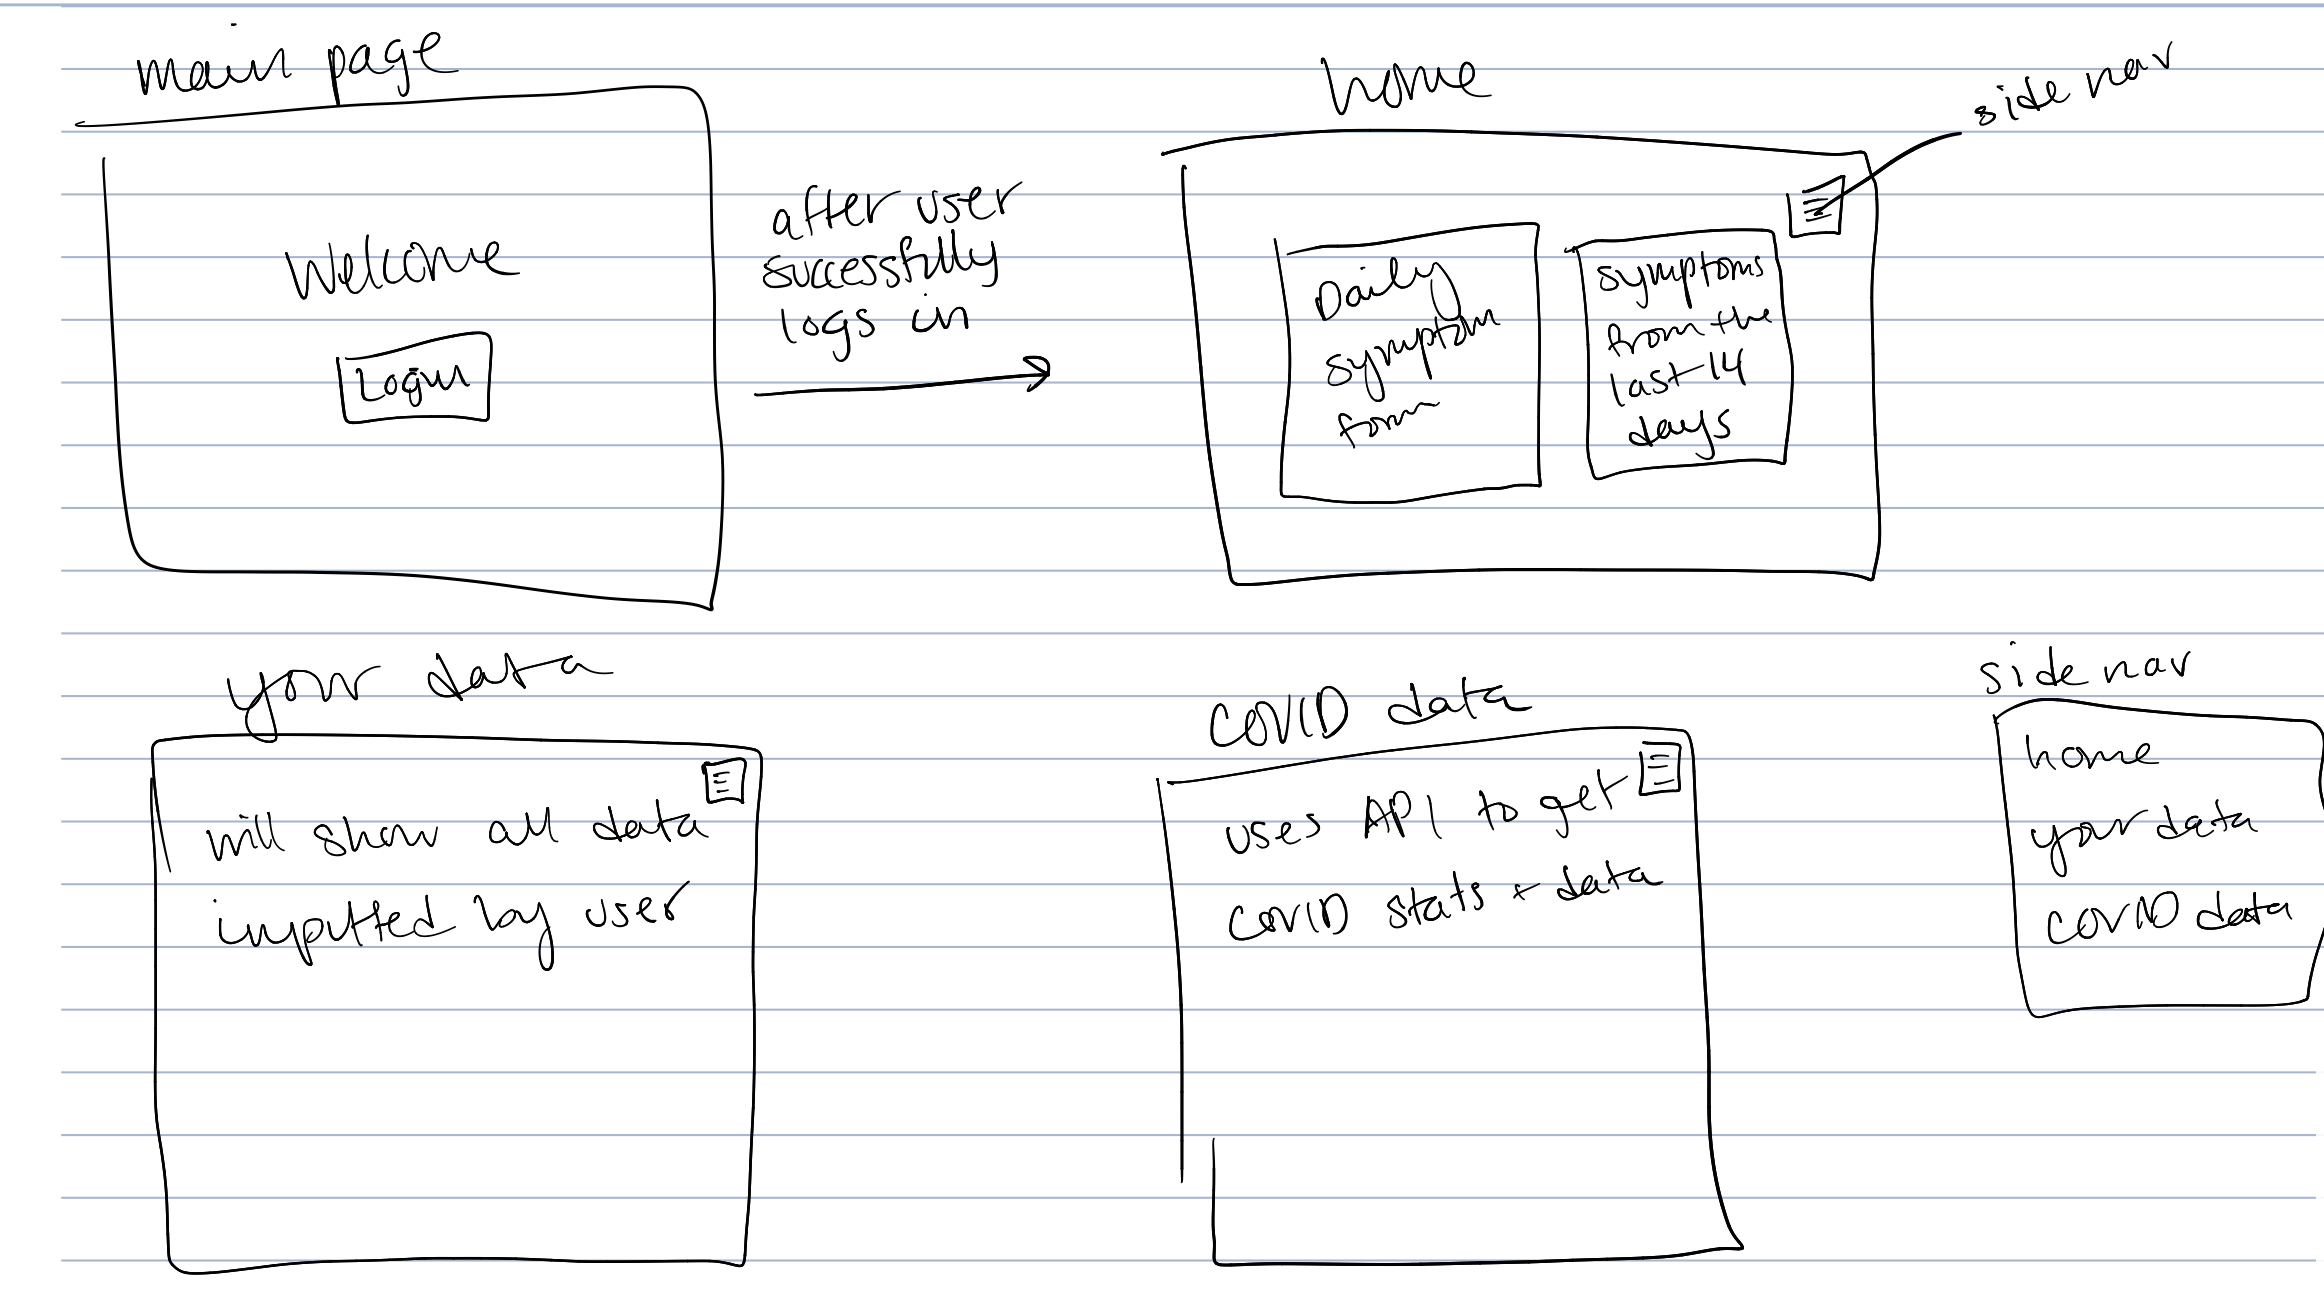 main page
Welcome
Login
after user
successfully
logs in
home
side nav
Daily
symptom
form
symptoms
from the
last 14
days
your data
will show all data
inputted by user
COVID data
uses API to get
COVID stats + data
side nav
home
your data
COVID data